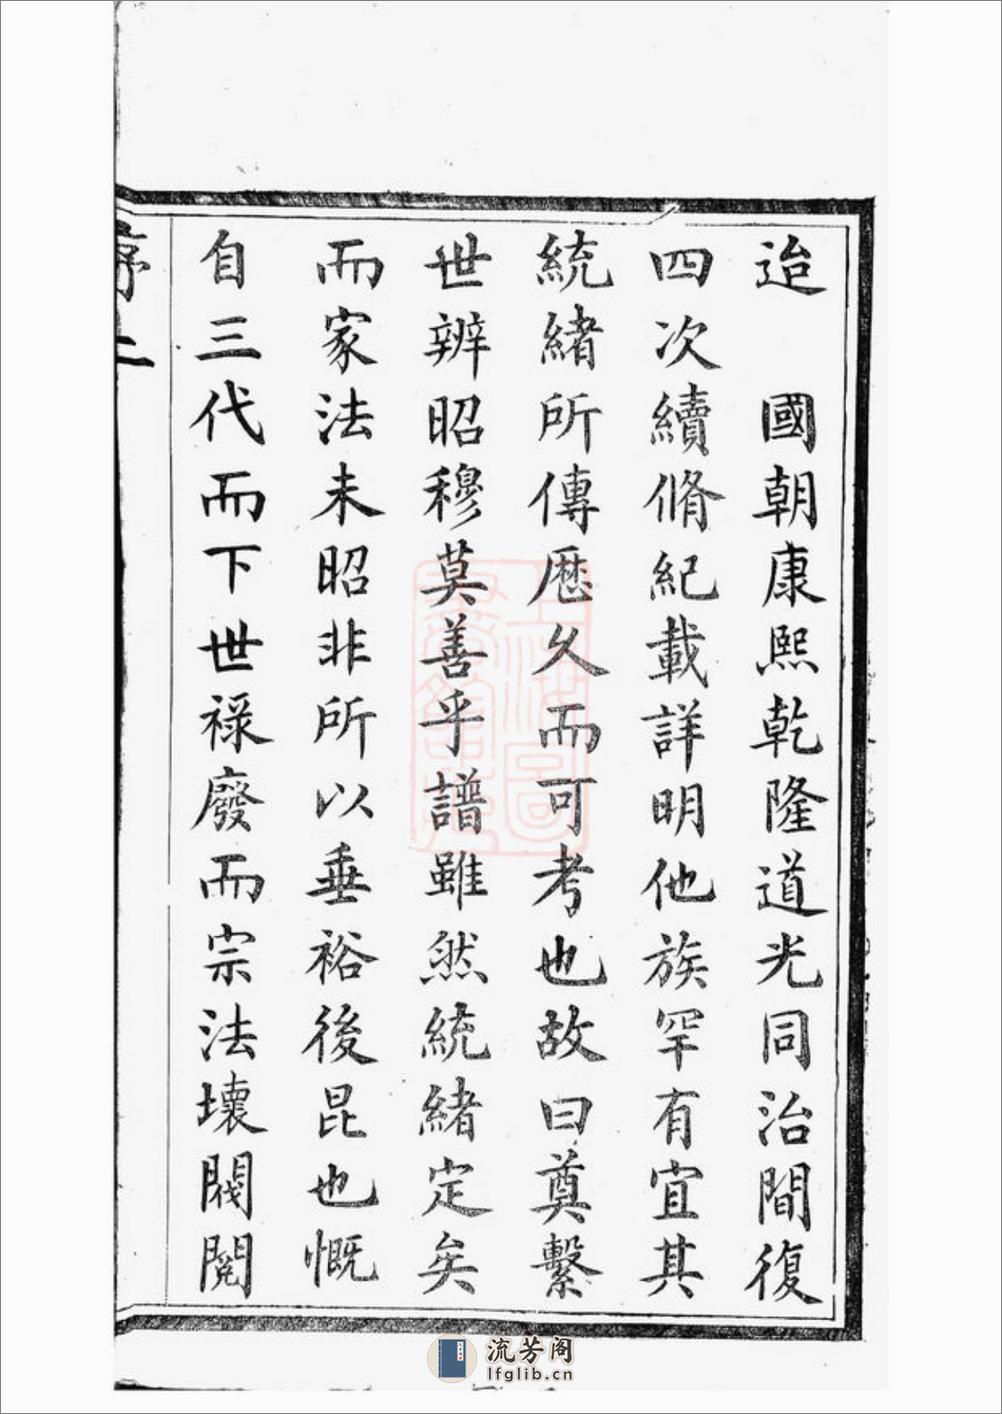 迨　國朝康熙乾隆道光同治間復
四次續脩紀載詳明他族罕有宜其
統緒所傳歷久而可考也故曰奠繫
世辨昭穆莫善乎譜雖然統緒定矣
而家法未昭非所以垂裕後昆也慨
自三代而下世祿廢而宗法壞閥閱
序二
上海圖書館藏
流芳阁
lfglib.cn